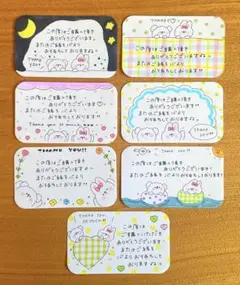 この度はご購入頂き
ありがとうございます。
またのご縁を心より
お待ちしております
THANK YOU!
THANK YOU
この度はご購入頂き
ありがとうございます!
またのご縁を心より
お待ちしております!!
この度はご購入頂き
ありがとうございます
またのご縁を心より
お待ちしております
THANK YOU
この度はご購入頂き
ありがとうございます
またのご縁を心より
お待ちしております
THANK YOU!
THANK YOU!!
この度はご購入頂き
ありがとうございます!
またのご縁を心より
お待ちしております!!
THANK YOU!
この度はご購入頂き
ありがとうございます!!
またのご縁を心より
お待ちしております
THANK YOU
この度は
ご購入いただき
ありがとうございます!
またのご縁を
心よりお待ちして
おります